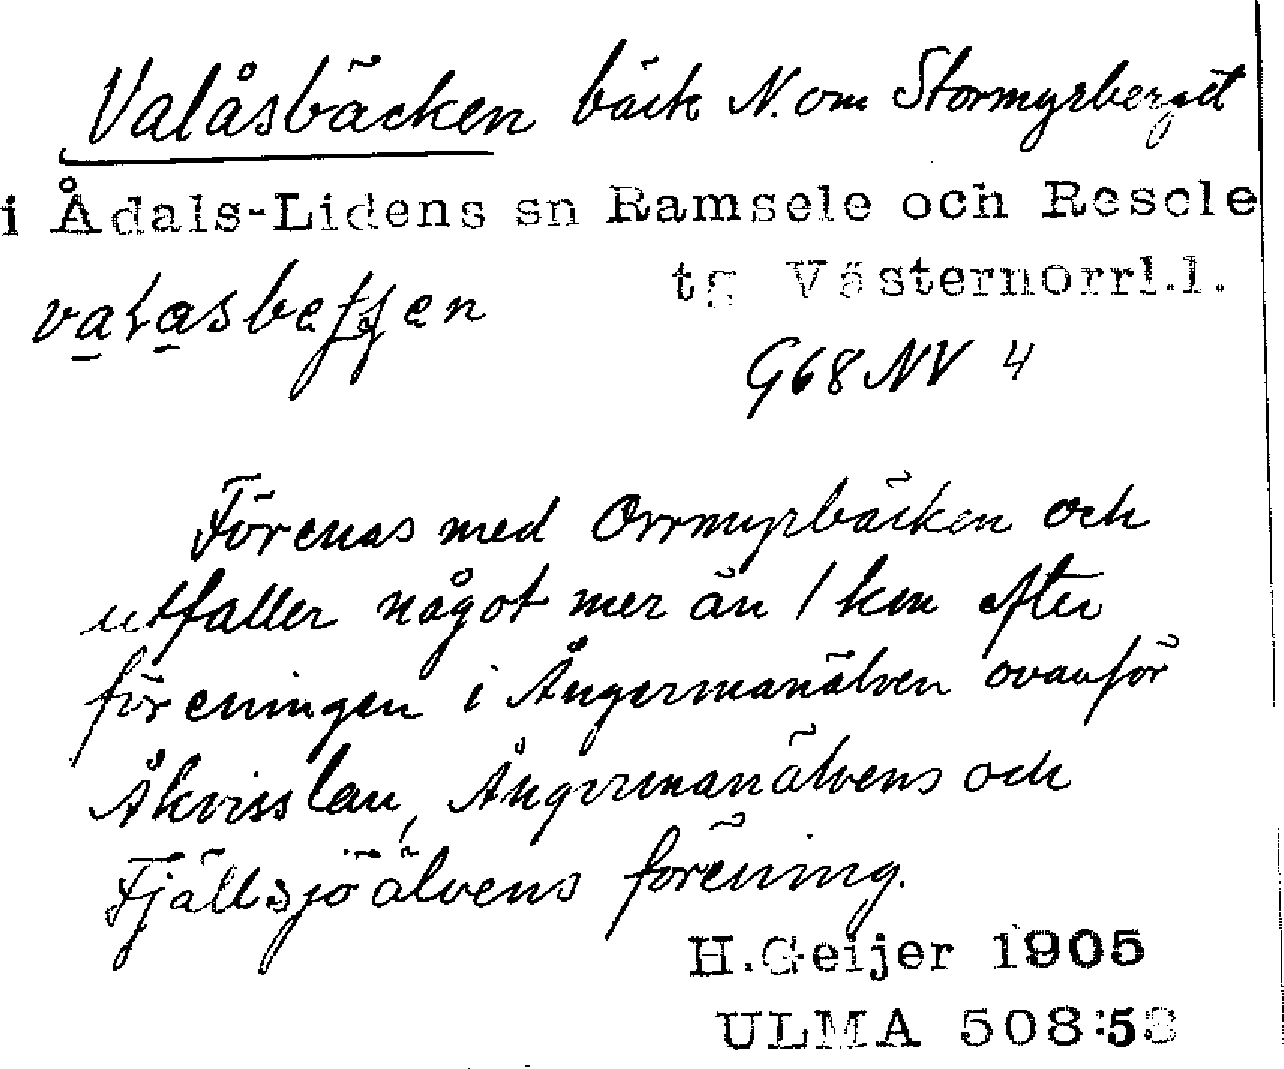 Valåsbäcken bäck N. om Stormyrberget
i Ådals-Lidens sn Ramsele och Resele
tg Västernorrl.l.
G68 NV 4
Förenas med Orrmyrbäcken och
utfaller något mer än 1 km efter
föreningen i Ångermanälven ovanför
Åkvisslan, Ångermanälvens och
Fjällsjöälvens förening.
H.Geijer 1905
ULMA 508:53